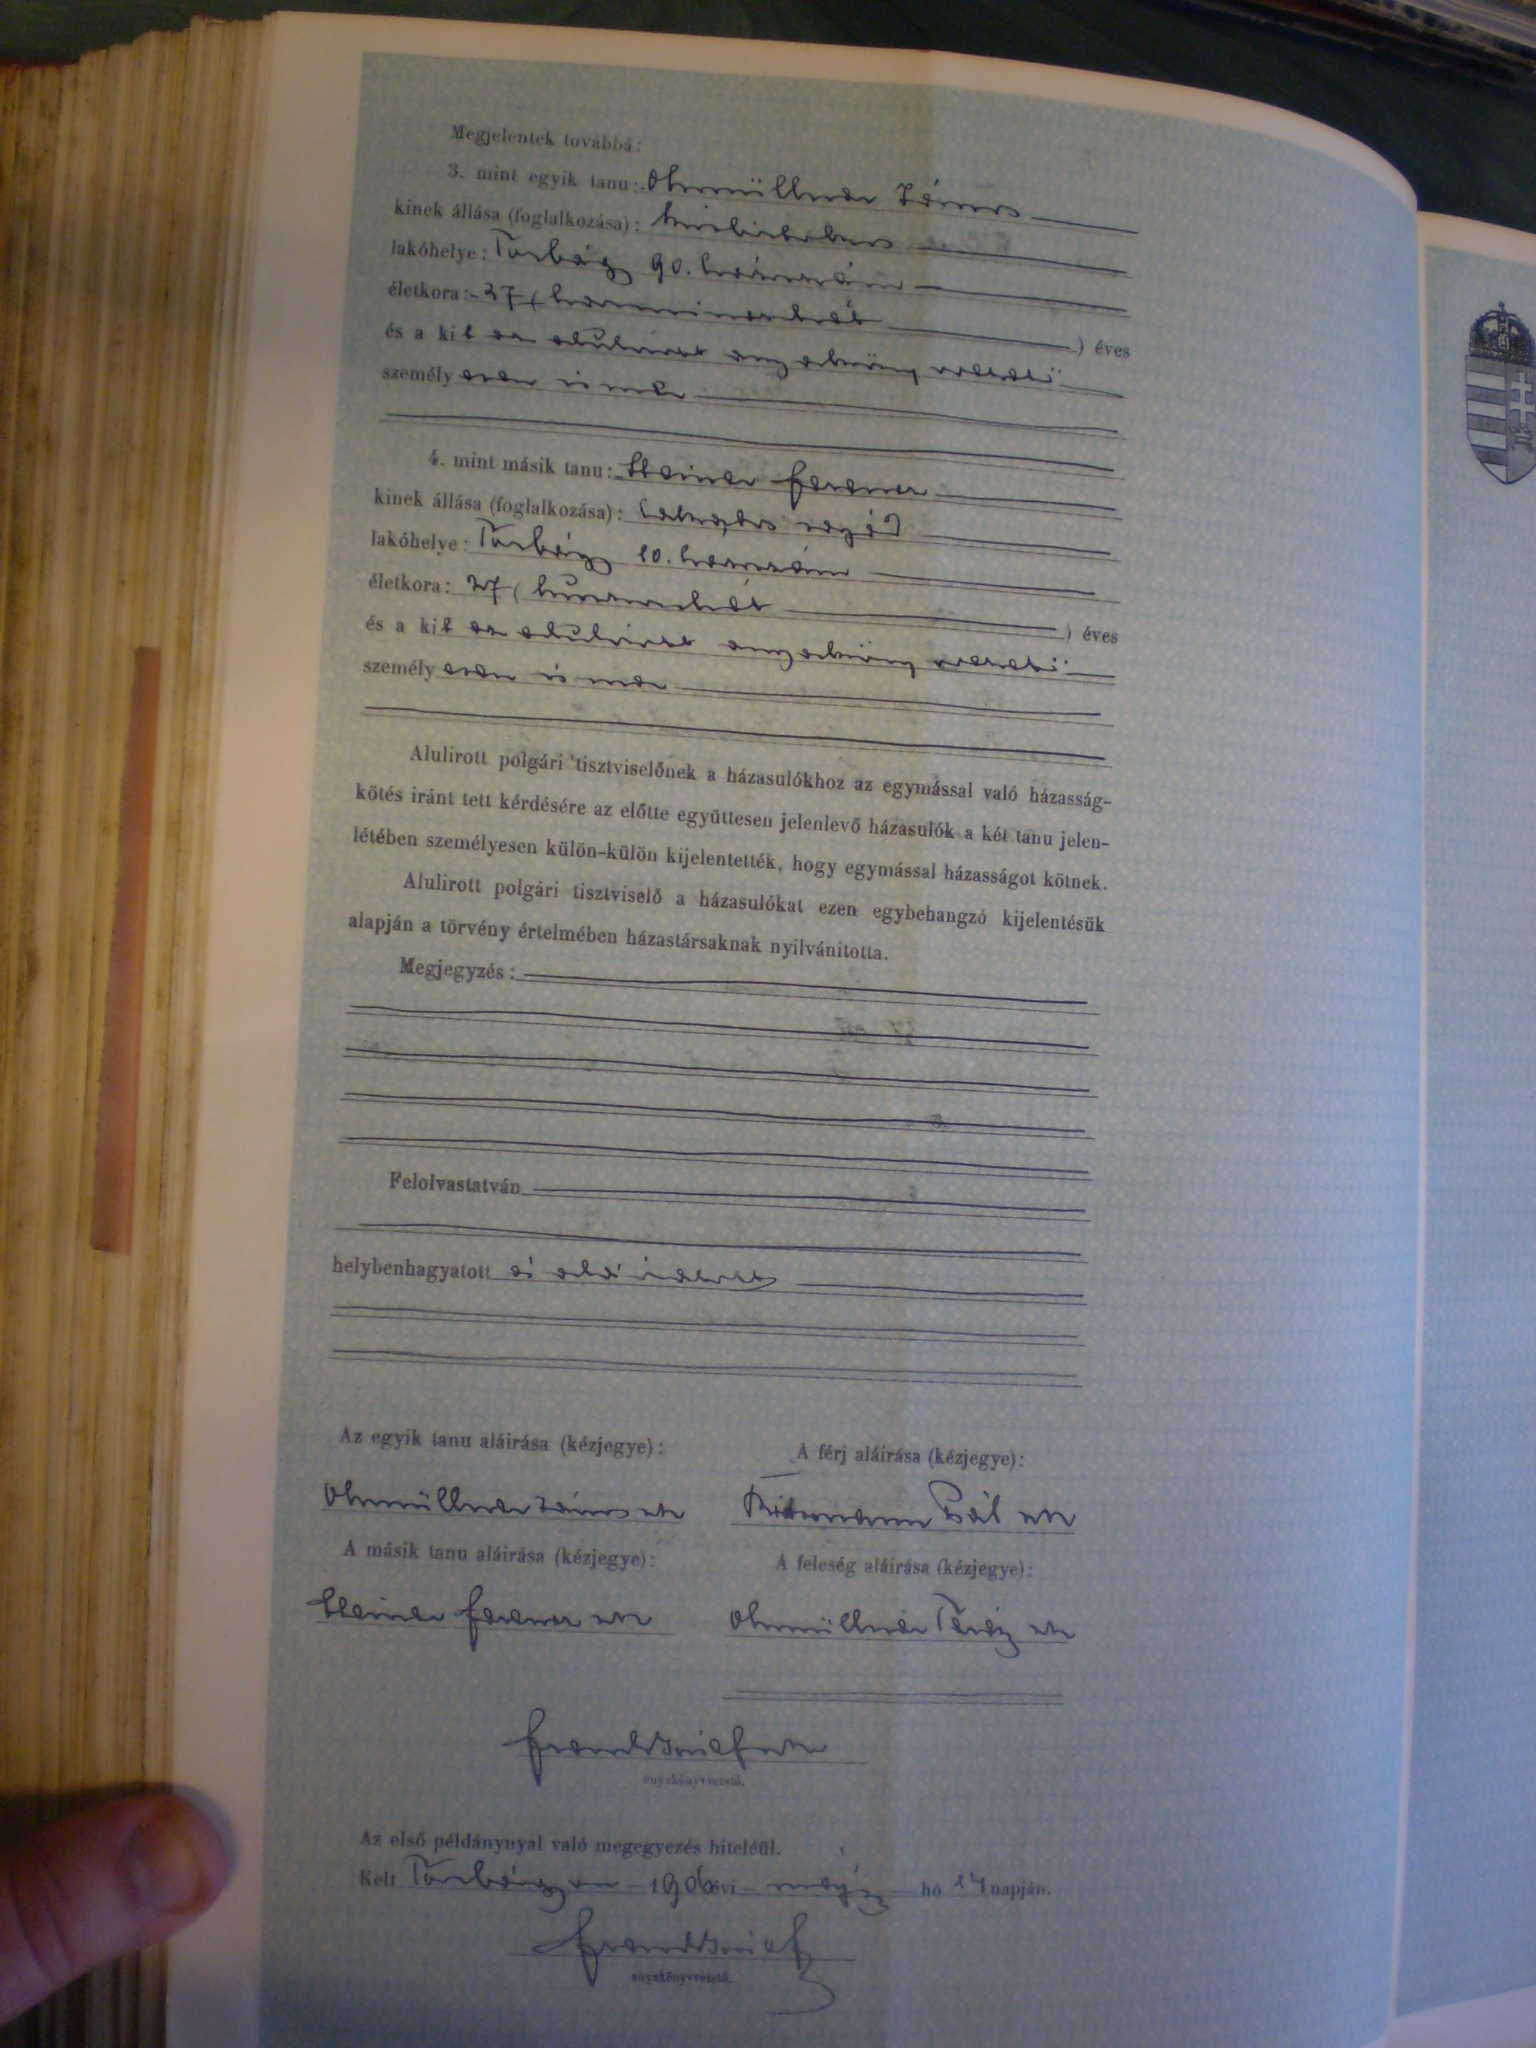 Megjelentek továbbá:
3. mint egyik tanu: Ohmüllner János
kinek állása (foglalkozása):
lakóhelye: Torbágy 90. házszám
életkora: 37 (harminczhét) éves
és a kit az alulirott anyakönyvvezető
személyesen ismer
4. mint másik tanu: Steiner Ferencz
kinek állása (foglalkozása):
lakóhelye: Torbágy 10. házszám
életkora: 27 (huszonhét) éves
és a kit az alulirott anyakönyvvezető
személyesen ismer
Alulirott polgári tisztviselőnek a házasulókhoz az egymással való házasság-
kötés iránt tett kérdésére az előtte együttesen jelenlevő házasulók a két tanu jelen-
létében személyesen külön-külön kijelentették, hogy egymással házasságot kötnek.
Alulirott polgári tisztviselő a házasulókat ezen egybehangzó kijelentésük
alapján a törvény értelmében házastársaknak nyilvánitotta.
Megjegyzés:
Felolvastatván
helybenhagyatott és aláiratott
Az egyik tanu aláirása (kézjegye):
A férj aláirása (kézjegye):
Ohmüllner János sk
Pál sk
A másik tanu aláirása (kézjegye):
A feleség aláirása (kézjegye):
Steiner Ferencz sk
Ohmüllner Teréz sk
anyakönyvvezető.
Az első példánynyal való megegyezés hiteléül.
Kelt Torbágyon 1906 évi hó napján.
anyakönyvvezető.